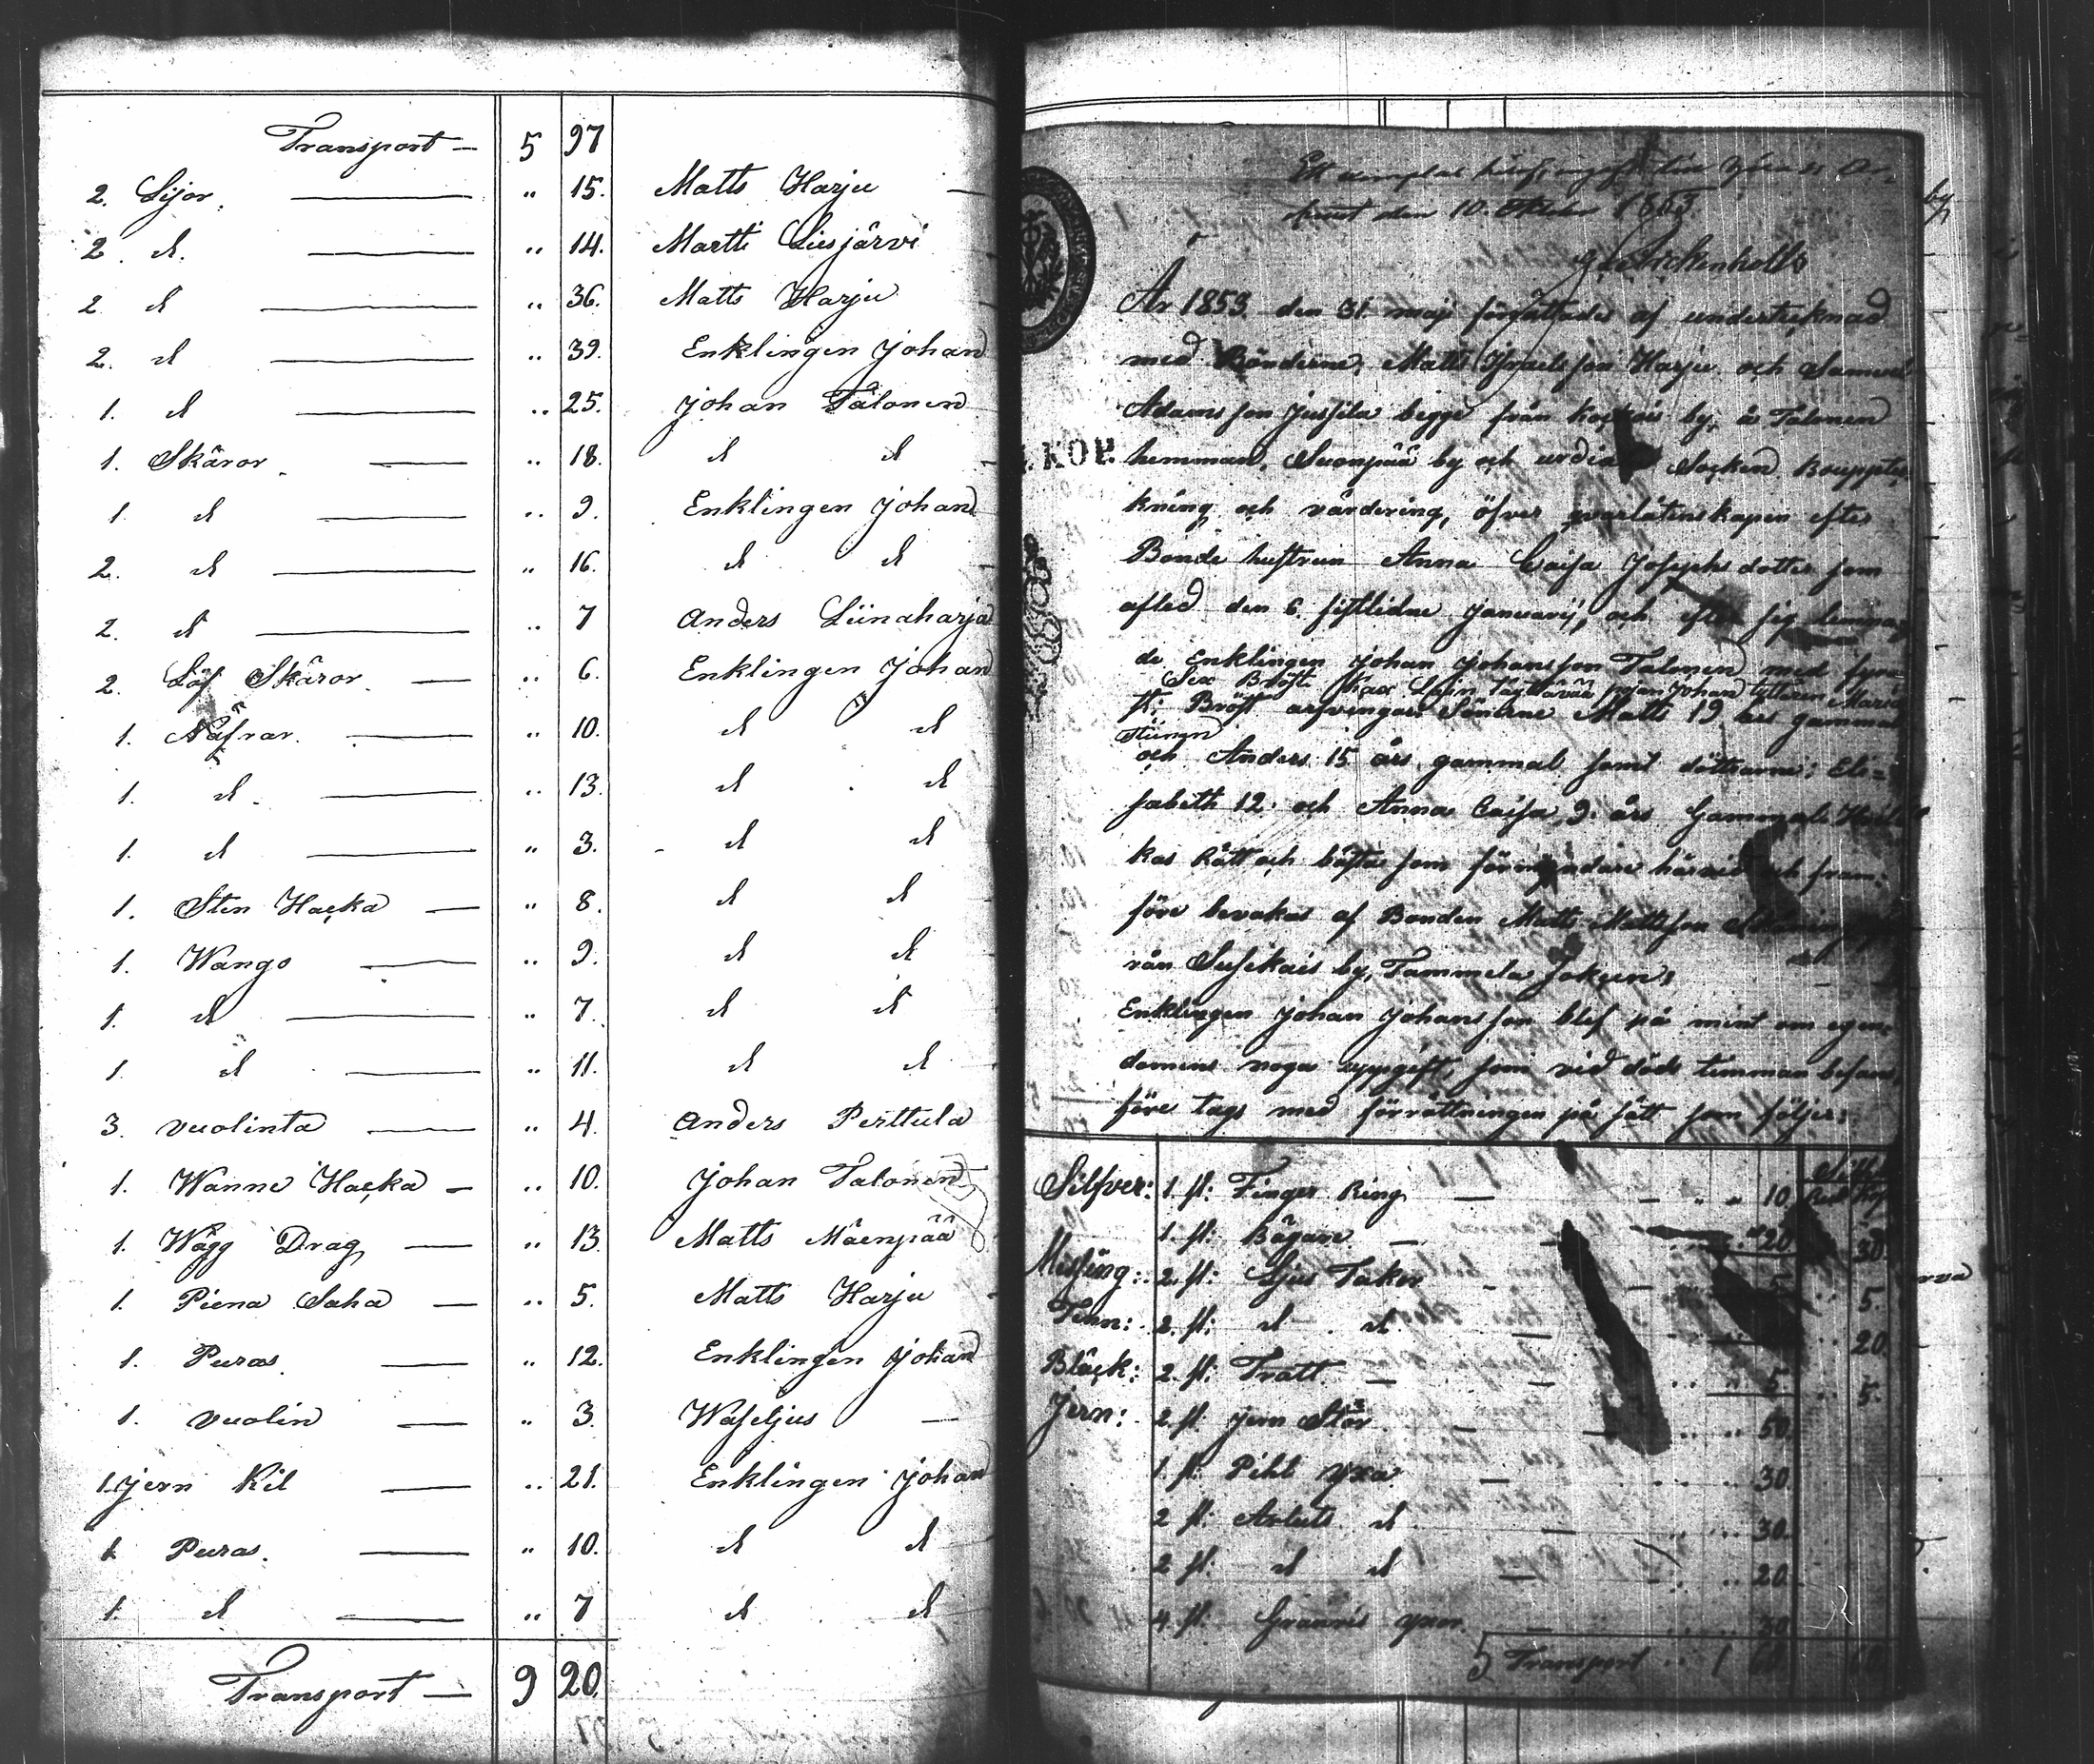 Transport — 5 97
2. Lijor. — " 15. Matts Harju —
2. d. — " 14. Martti Liesjärvi
2 d — " 36. Matts Harju
2. d — " 39. Enklingen Johan
1. d — " 25. Johan Talonen
1. Skäror. — " 18. d d
1. d — " 9. Enklingen Johan
2. d — " 16. d d
2. d — " 7 Anders Liinaharja
2. Löf Skäror. — " 6. Enklingen Johan
1. Näfrar. — " 10. d d
1. d. — " 13. d d
1. d — " 3. d d
1. Sten Hacka — " 8. d d
1. Wango — " 9. d d
1. d — " 7. d d
1. d — " 11. d d
3. vuolinta — " 4. Anders Perttula
1. Wanne Hacka — " 10. Johan Talonen
1. Wägg Drag — " 13. Matts Mäenpää
1. Piena Saha — " 5. Matts Harju
1. Puras. — " 12. Enklingen Johan
1. vuolin — " 3. Waseljus —
1. jern Kil — " 21. Enklingen Johan
1 Puras. — " 10. d d
1. d — " 7 d d
Transport — 9 20.
Ett
den 10. Oktober
År 1853. den 31 maji författades af undertecknad
med Bönderne, Matts Israelsson Harju och Samuel
Adamsson Jussila begge från by, å Talonen
KOP.
hemman, Suonpää by och urdiala Socken Bouppte-
kning och värdering, öfver qvarlåtenskapen efter
Bonde hustrun Anna Caisa Josephsdotter som
afled den 6 sistlidne Januarij, och efter sig lemna-
de Enklingen Johan Johansson Talonen med fyra
Sex Bröst Johan tytteren Maria
st: Bröst arfvingar Sönerne Matts 19 års gammal
och Anders 15 års gammal samt döttrarne: Eli-
sabeth 12 och Anna Caisa 9 års Gammal. Hvil-
kas Rätt och bästa som förmyndare härvid och fram-
före bevakas af Bonden Matts Mattsson
rån Susikais by, Tammela Sokcen:
Enklingen Johan Johansson blef på mint om egen-
domens noga uppgift, som vid döds timman befans,
före togs med förrättningen på sätt som följer:
Silfver: 1. st: Finger Ring — " " 10
1. st: Bägare — " 20 30
Missing: 2. st: Ljus Taker — 5 " 5.
Tenn: 2. st: d d. — " 20
Bläck: 2. st: Tratt — " " 5 " 5.
Jern: 2. st: jern Stör — " " 50
1. st: Pihl yxa — " " 30
2 st: Arbets d — " " 30
2 st: d d — " " 20
4. st: yxor. — " " 30
Transport " 1 60